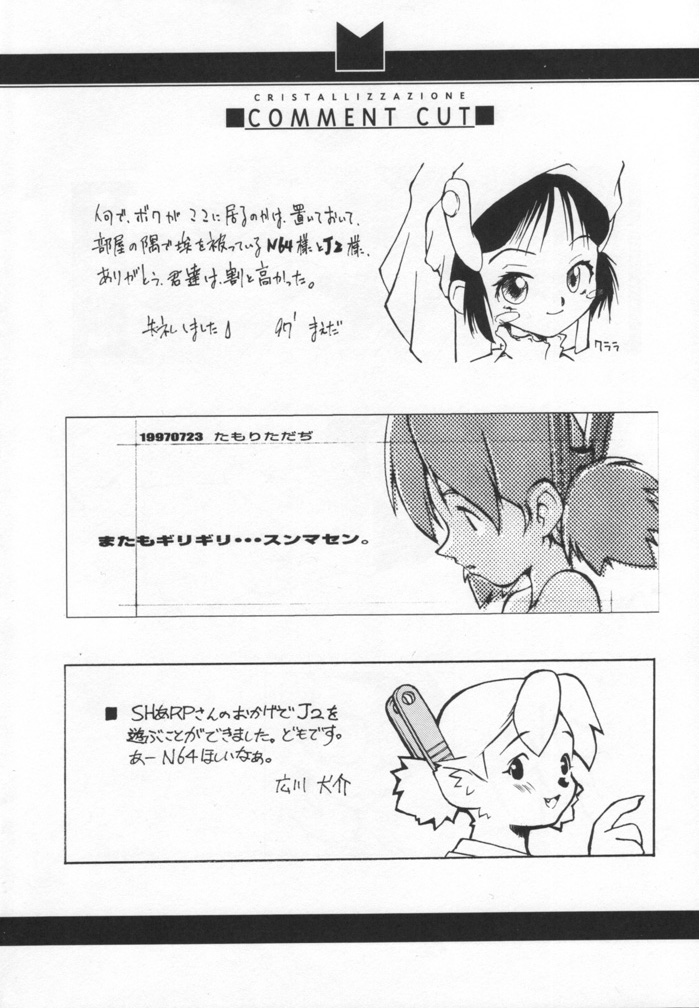 CRISTALLIZZAZIONE
■COMMENT CUT■
何で、ボクが ここに居るのかは、置いておいて、
部屋の隅で埃を被っているN64様とJ2様、
ありがとう、君達は、割と高かった。
失礼しました♪ 97' まえだ
クララ
19970723 たもりただぢ
またもギリギリ・・・スンマセン。
■ SHあRPさんのおかげでJ2を
遊ぶことができました。どもです。
あー N64ほしいなぁ。
広川 大介